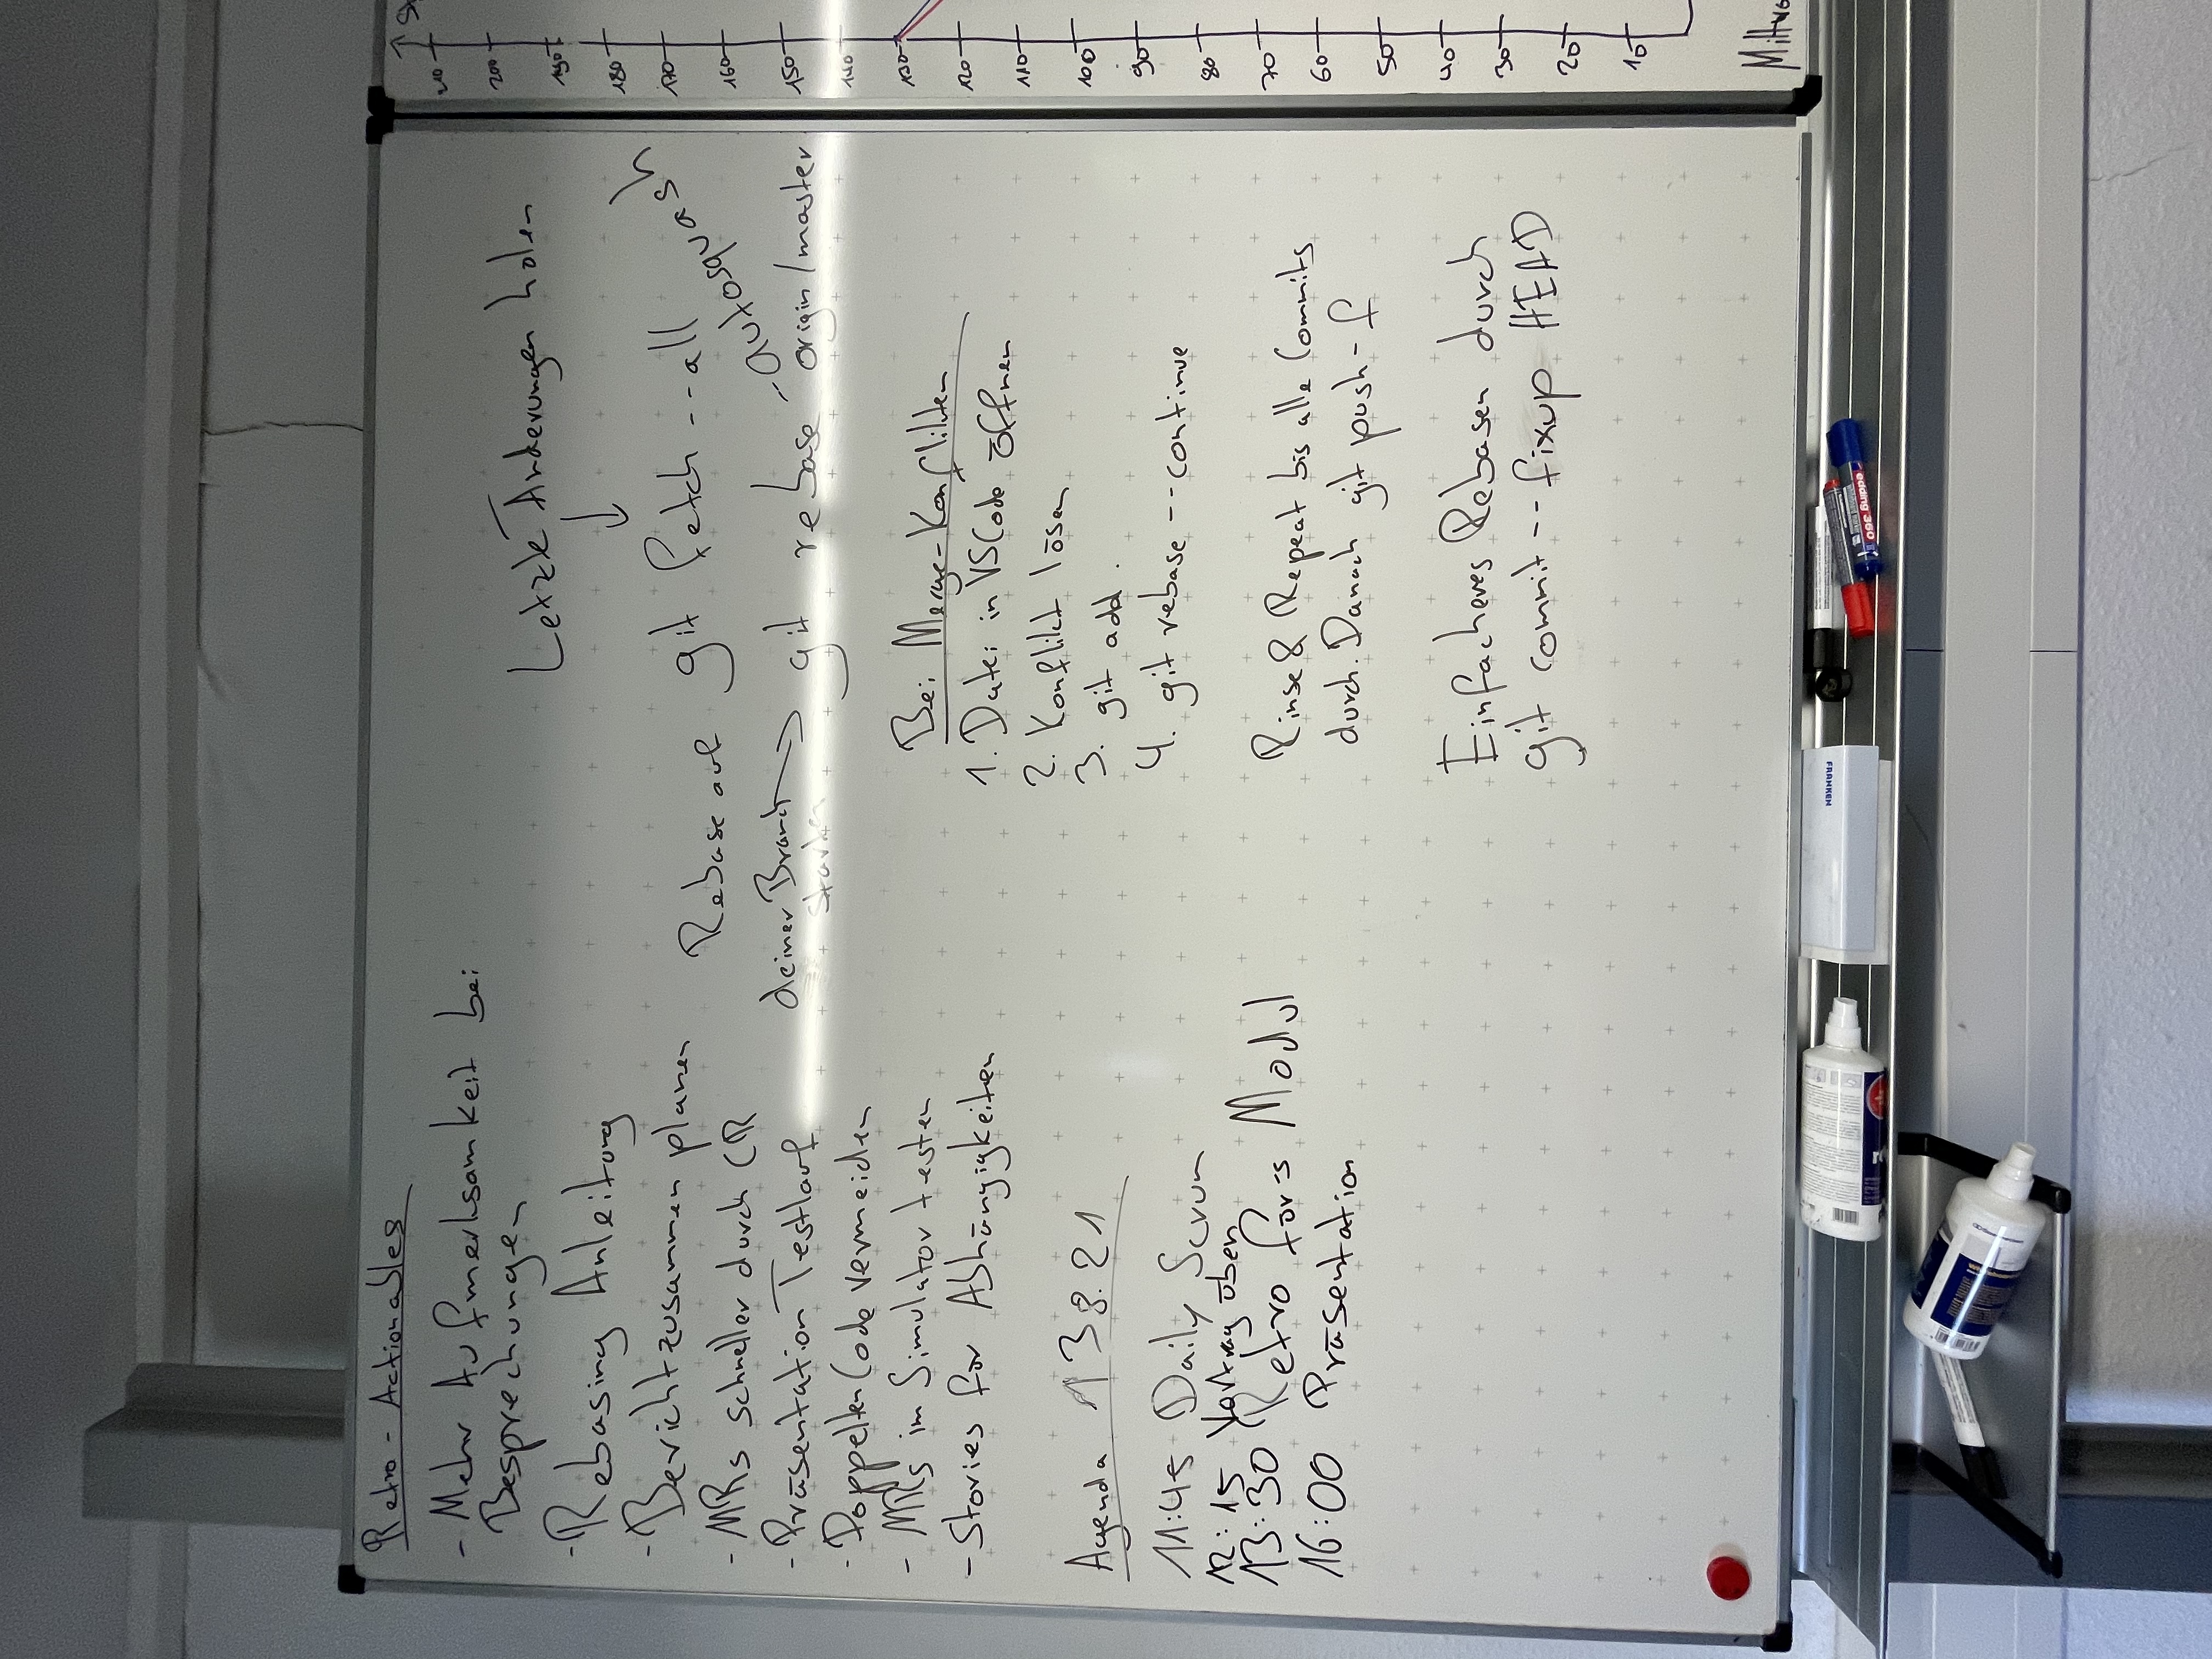 Retro - Actionables
- Mehr Aufmerksamkeit bei
Besprechungen
- Rebasing Anleitung
- Bericht zusammen planen
- MRs schneller durch CR
- Präsentation Testlauf
- Doppelten Code vermeiden
- MRs im Simulator testen
- Stories für Abhängigkeiten
Agenda 13 8. 21
11:45 Daily Scrum
12:15 Vortrag üben
13:30 Retro für's Modul
16:00 Präsentation
Letzte Änderungen holen
↓
git fetch --all
Rebase auf
deiner Branch → git rebase --autosquash origin/master
starten
Bei Merge-Konflikten
1. Datei in VSCode öffnen
2. Konflikt lösen
3. git add .
4. git rebase --continue
Rinse & Repeat bis alle Commits
durch. Danach git push -f
Einfacheres Rebasen durch
git commit --fixup HEAD
210
200
190
180
170
160
150
140
130
120
110
100
90
80
70
60
50
40
30
20
10
Mittwo
FRANKEN
edding 360